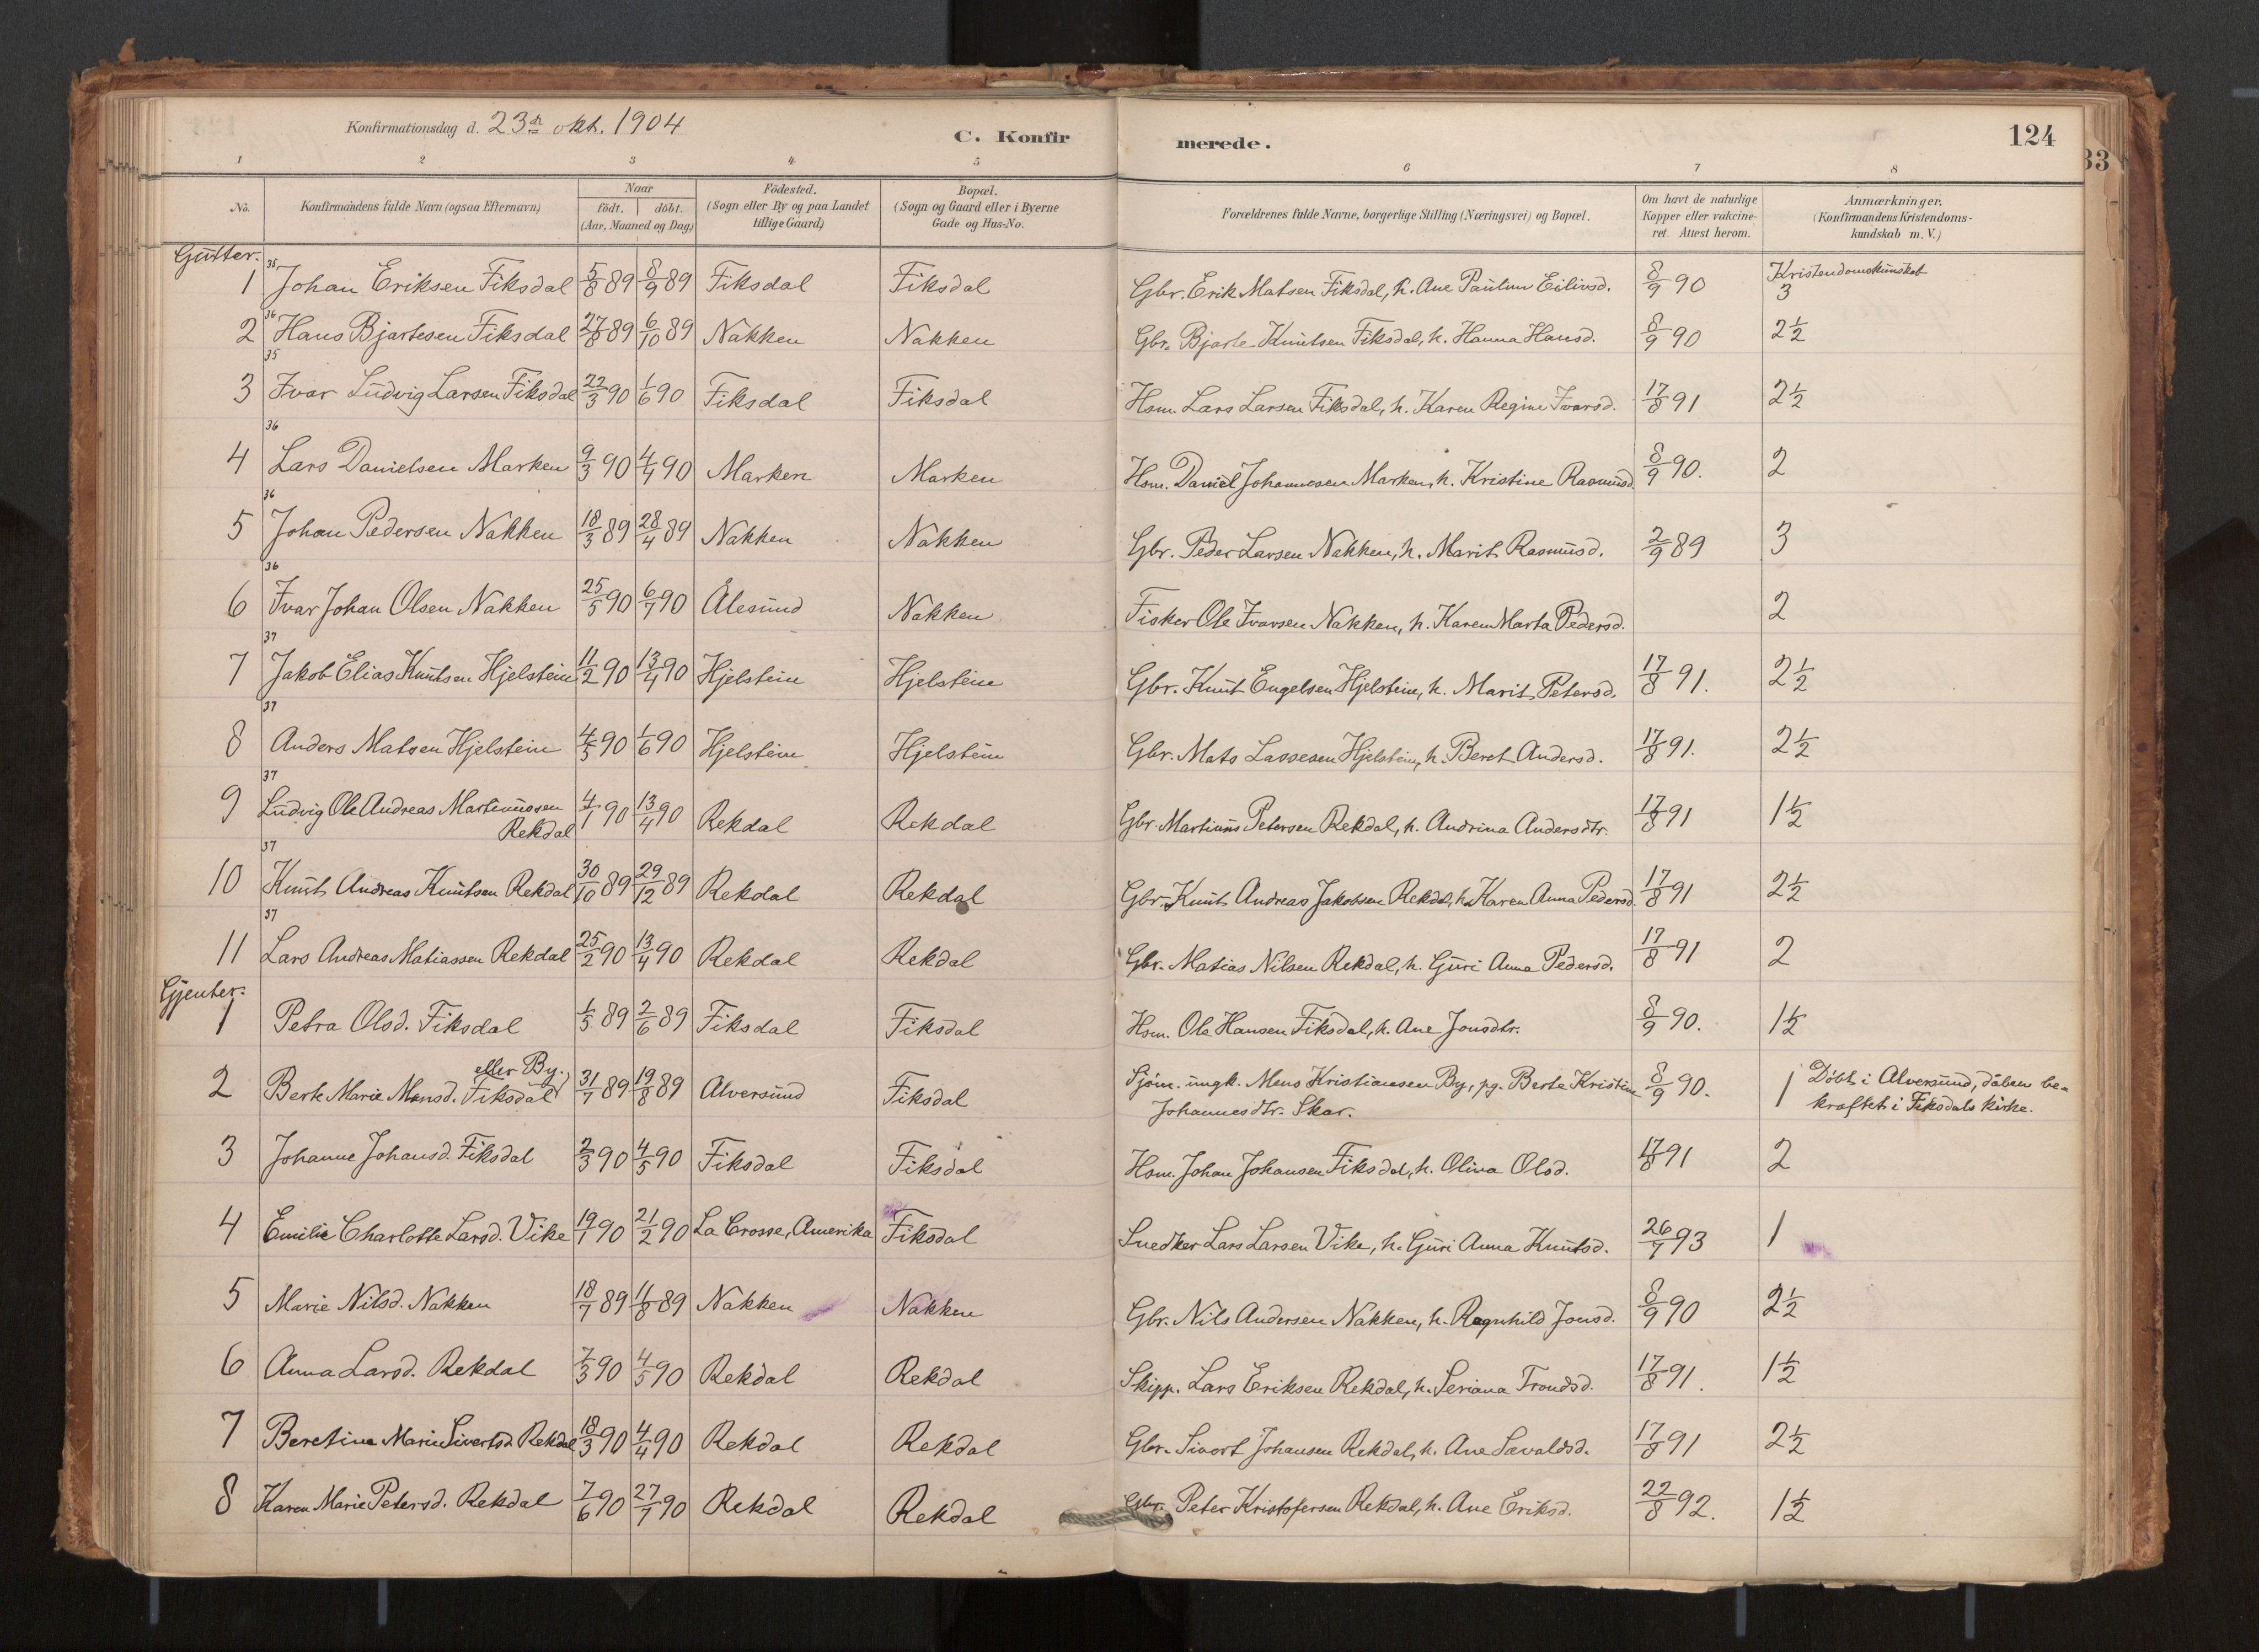 Konfirmationsdag d. 23de okt. 1904
C. Konfirmerede.
124
33
1 2 3 4 5 6 7 8
No.
Konfirmandens fulde Navn (ogsaa Efternavn)
Naar
födt. döbt.
(Aar, Maaned og Dag)
Födested.
(Sogn eller By og paa Landet
tillige Gaard)
Bopæl.
(Sogn og Gaard eller i Byerne
Gade og Hus-No.
Forældrenes fulde Navne, borgerlige Stilling (Næringsvei) og Bopæl.
Om havt de naturlige
Kopper eller vakcine-
ret. Attest herom.
Anmærkninger.
(Konfirmandens Kristendoms-
kundskab m. V.)
Gutter.
Kristendomskunskab
35
1 Johan Eriksen Fiksdal 5/8 89 8/9 89 Fiksdal Fiksdal Gbr. Erik Matsen Fiksdal, h. Ane Pauline Eilivsd. 8/9 90 3
36
2 Hans Bjartesen Fiksdal 27/8 89 6/10 89 Nakken Nakken Gbr. Bjarte Knutsen Fiksdal, h. Hanna Hansd. 8/9 90 2½
35
3 Ivar Ludvig Larsen Fiksdal 22/3 90 1/6 90 Fiksdal Fiksdal Hsm. Lars Larsen Fiksdal, h. Karen Regine Ivarsd. 17/8 91 2½
36
4 Lars Danielsen Marken 9/3 90 4/4 90 Marken Marken Hsm. Daniel Johannesen Marken, h. Kristine Rasmusd. 8/9 90. 2
36
5 Johan Pedersen Nakken 18/3 89 28/4 89 Nakken Nakken Gbr. Peder Larsen Nakken, h. Marit Rasmusd. 2/9 89 3
36
6 Ivar Johan Olsen Nakken 25/5 90 6/7 90 Ålesund Nakken Fisker Ole Ivarsen Nakken, h. Karen Marta Pedersd. 2
37
7 Jakob Elias Knutsen Hjelstein 11/2 90 13/4 90 Hjelstein Hjelstein Gbr. Knut Engelsen Hjelstein, h. Marit Petersd. 17/8 91. 2½
37
8 Anders Matsen Hjelstein 4/5 90 1/6 90 Hjelstein Hjelstein Gbr. Mats Lassesen Hjelstein, h. Beret Andersd. 17/8 91. 2½
37
9 Ludvig Ole Andreas Martinussen
Rekdal 4/1 90 13/4 90 Rekdal Rekdal Gbr. Martinus Petersen Rekdal, h. Andrina Andersdtr. 17/8 91 1½
37
10 Knut Andreas Knutsen Rekdal 30/10 89 29/12 89 Rekdal Rekdal Gbr. Knut Andreas Jakobsen Rekdal, h. Karen Anna Pedersd. 17/8 91 2½
37
11 Lars Andreas Matiassen Rekdal 25/2 90 13/4 90 Rekdal Rekdal Gbr. Matias Nilsen Rekdal, h. Guri Anna Pedersd. 17/8 91 2
Gjenter.
1 Petra Olsd. Fiksdal 1/5 89 2/6 89 Fiksdal Fiksdal Hsm. Ole Hansen Fiksdal, h. Ane Jonsdtr. 8/9 90. 1½
eller By.
2 Berte Marie Monsd. Fiksdal 31/7 89 19/8 89 Alversund Fiksdal Sjöm. ungk. Mons Kristiansen By, pg. Berte Kristine
Johannesdtr. Skar. 8/9 90. 1 Döbt i Alversund, dåben be-
kræftet i Fiksdals kirke.
3 Johanne Johansd. Fiksdal 2/3 90 4/5 90 Fiksdal Fiksdal Hsm. Johan Johansen Fiksdal, h. Oliva Olsd. 17/8 91 2
4 Emilie Charlotte Larsd. Vike 19/1 90 21/2 90 La Crosse, Amerika Fiksdal Snedker Lars Larsen Vike, h. Guri Anna Knutsd. 26/7 93 1
5 Marie Nilsd. Nakken 18/7 89 11/8 89 Nakken Nakken Gbr. Nils Andersen Nakken, h. Ragnhild Jonsd. 8/9 90 2½
6 Anna Larsd. Rekdal 7/3 90 4/5 90 Rekdal Rekdal Skipp. Lars Eriksen Rekdal, h. Seriana Trondsd. 17/8 91. 1½
7 Beretine Marie Sivertsd. Rekdal 18/3 90 4/4 90 Rekdal Rekdal Gbr. Sivert Johansen Rekdal, h. Ane Sævaldsd. 17/8 91 2½
8 Karen Marie Petersd. Rekdal 7/6 90 27/7 90 Rekdal Rekdal Gbr. Peter Kristofersen Rekdal, h. Ane Eriksd. 22/8 92. 1½